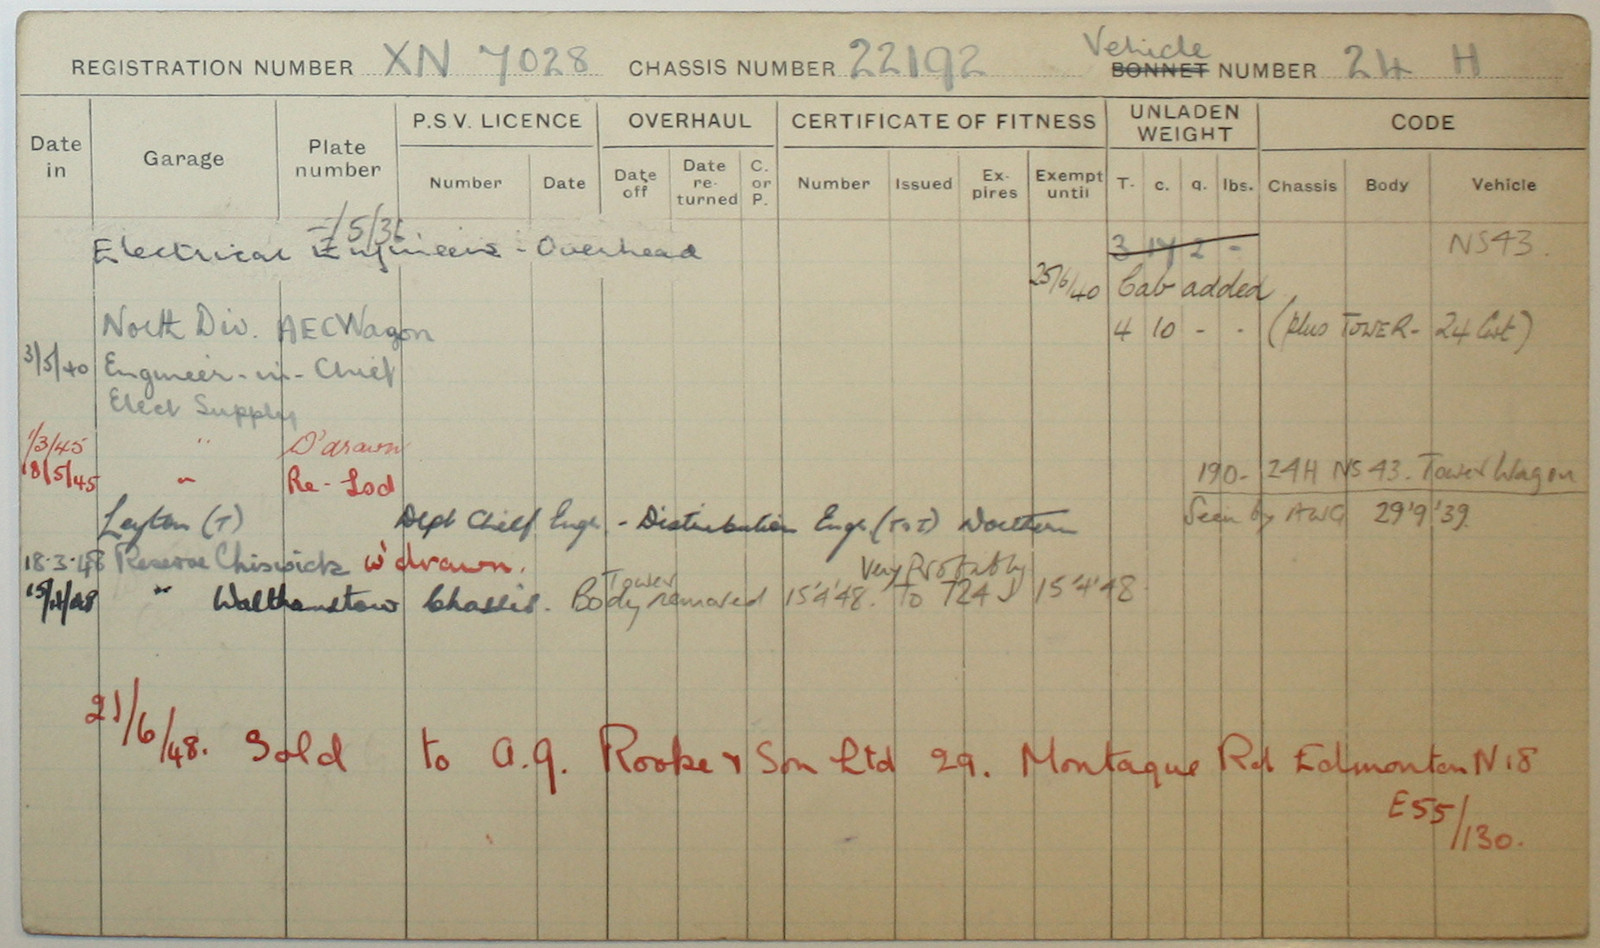 REGISTRATION NUMBER XN 7028 CHASSIS NUMBER 22192 Vehicle BONNET NUMBER 24 H
Date in Garage Plate number P.S.V. LICENCE OVERHAUL CERTIFICATE OF FITNESS UNLADEN WEIGHT CODE
Number Date Date off Date re-turned C. or P. Number Issued Ex-pires Exempt until T. c. q. lbs. Chassis Body Vehicle
-/5/36
Electrical Engineers - Overhead 3 17 2 - NS43.
25/6/40 Cab added
North Div. AEC Wagon 4 10 - - (plus TOWER - 24 Cwt)
3/5/40 Engineer-in-Chief
Elect Supply
1/3/45 " D'drawn
18/5/45 " Re-Lod 190- 24H NS43. Tower Wagon
Leyton (T) Dept Chief Engr. - Distribution Engr. (T&T) Northern Seen by AWG 29'9'39
18.3.48 Reserve Chiswick w'drawn.
15/4/48 " Walthamstow Chassis. Tower Body removed 15'4'48. Very Probably to 724J 15'4'48
21/6/48. Sold to A.G. Rooke & Son Ltd 29. Montague Rd Edmonton N18
E55/130.